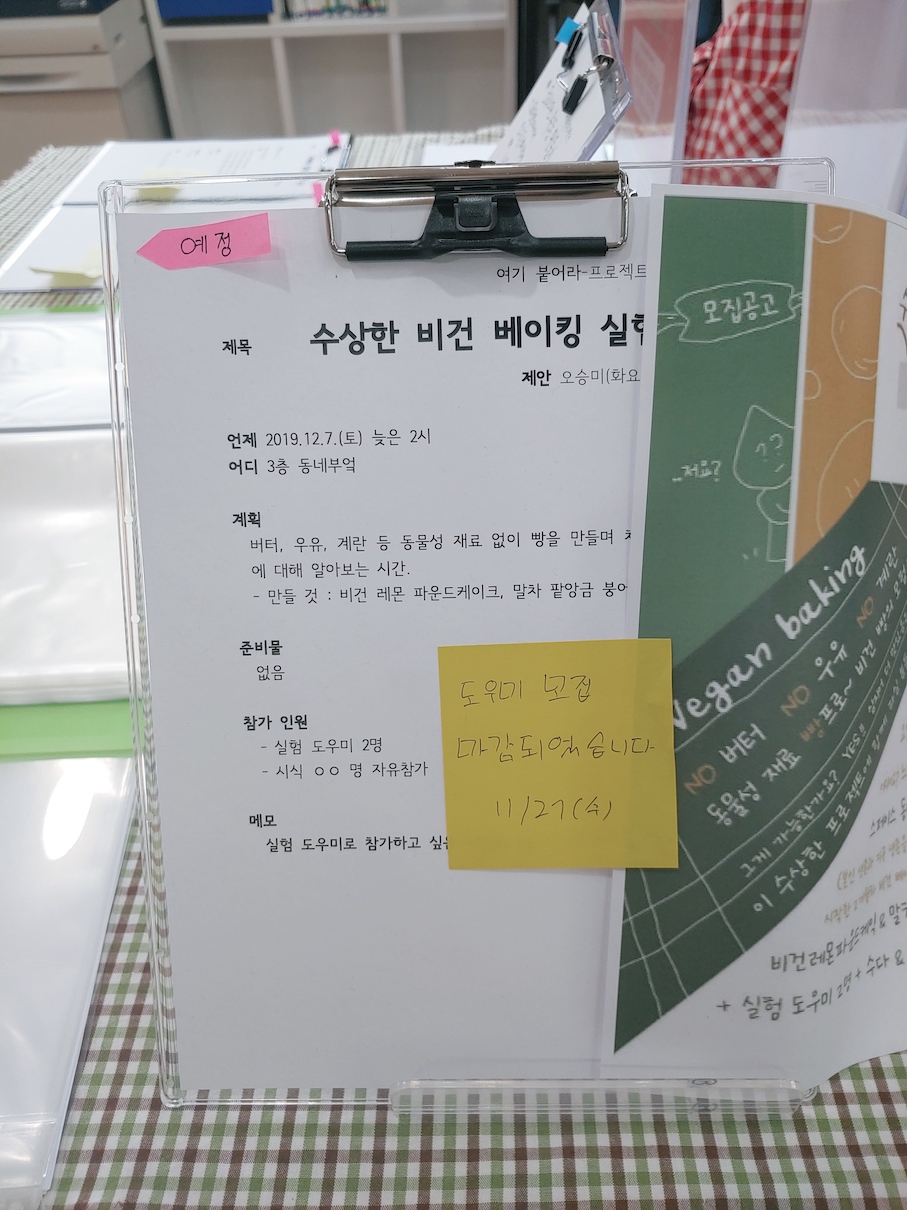 예정
여기 붙어라-프로젝트
제목 수상한 비건 베이킹
제안 오승미(화요
언제 2019.12.7.(토) 늦은 2시
어디 3층 동네부엌
계획
버터, 우유, 계란 등 동물성 재료 없이 빵을 만들며
에 대해 알아보는 시간.
- 만들 것 : 비건 레몬 파운드케이크, 말차 팥앙금 붕어
준비물
없음
참가 인원
- 실험 도우미 2명
- 시식 ㅇㅇ 명 자유참가
메모
실험 도우미로 참가하고
도우미 모집
마감되었습니다
11/27(수)
모집공고
..저요?
??
Vegan baking
NO 버터 NO 우유 NO 계란
동물성 재료 빵프로~ 비건 빵의 모양
그게 가능한가요? YES
이 수상한 프로젝트에
비건레몬파운드케잌 & 말
+ 실험 도우미 2명 + 수다 &